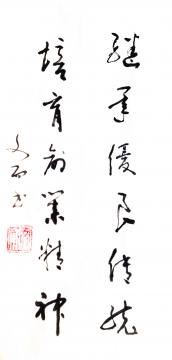 继承优良传统
培育创业精神
文石书